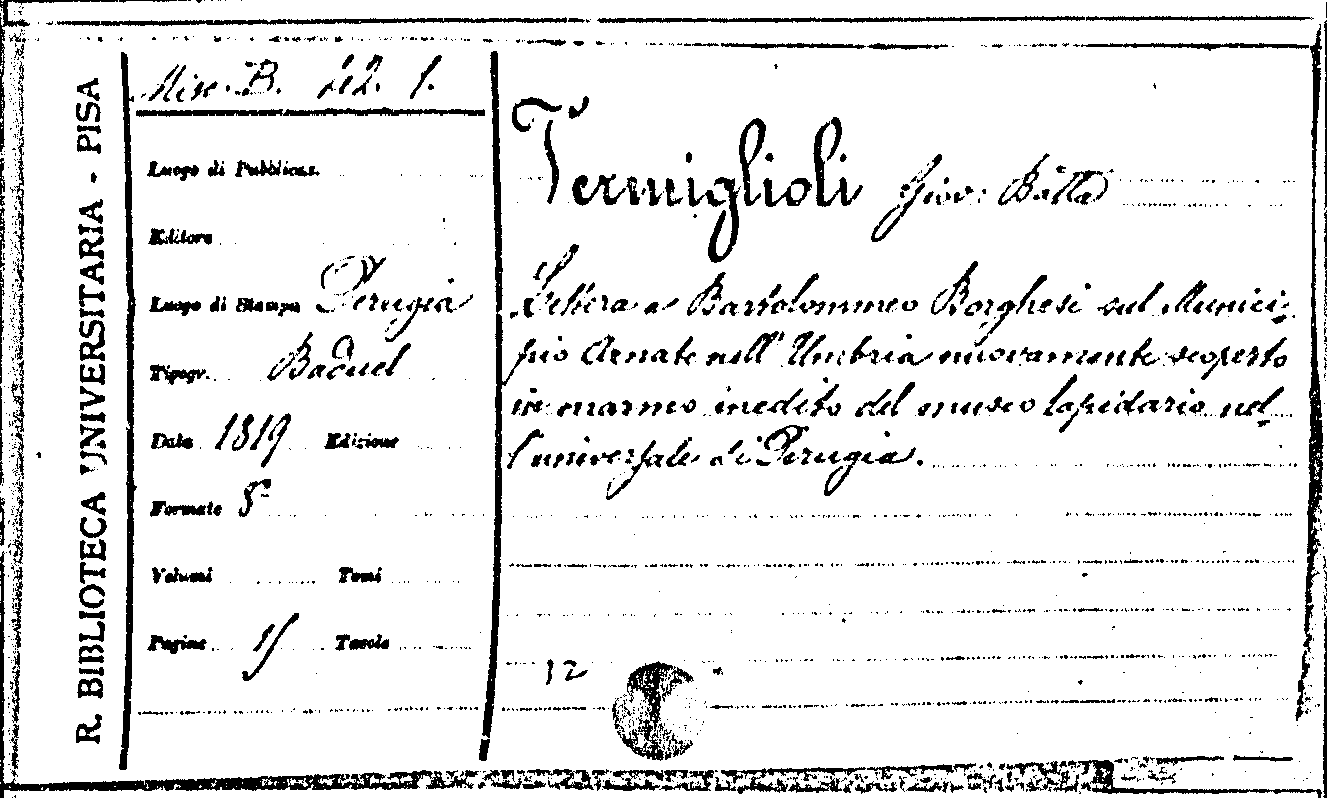 R. BIBLIOTECA UNIVERSITARIA - PISA
Misc. B. 212. 1.
Luogo di Pubblicaz.
Editore
Luogo di Stampa Perugia
Tipogr. Baduel
Data 1819 Edizione
Formato 8°
Volumi Tomi
Pagine Tavole
Vermiglioli Giov: Batta
Lettera a Bartolommeo Borghesi sul Munici-
pio Arnate nell'Umbria nuovamente scoperto
in marmo inedito del museo lapidario nel-
l'universale di Perugia.
12